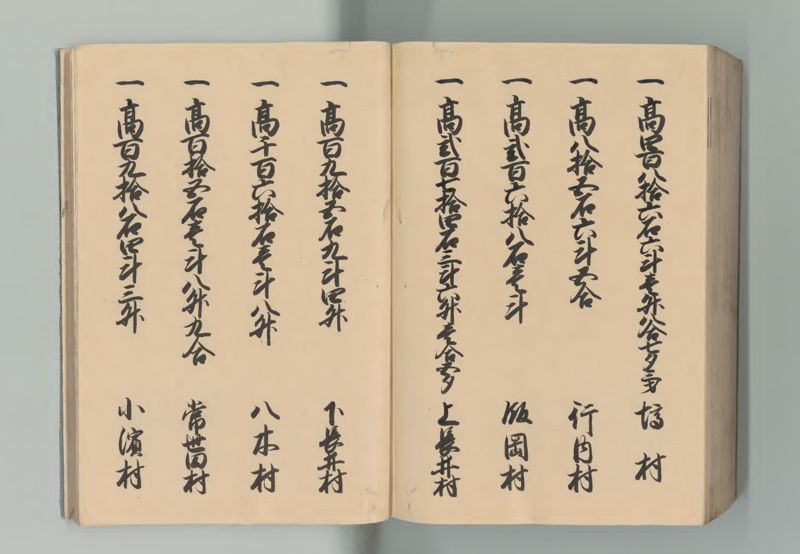 一高四百八拾六石六斗壱升八合七夕三才 塙村
一高八拾五石六斗五合 行内村
一高弐百六拾八石壱斗 飯岡村
一高弐百七拾四石三斗六升壱合五夕 上長井村
一高百九拾五石九斗四升 下長井村
一高千百六拾石壱斗八升 八木村
一高百拾五石壱斗八升九合 常世田村
一高百九拾八石四斗三升 小濱村